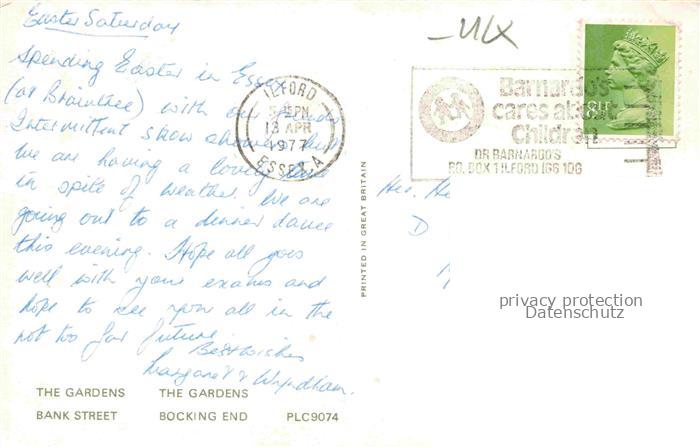 Easter Saturday
Spending Easter in Essex
(at Braintree) with our
Intermittent snow showers but
We are having a lovely time
in spite of weather. We are
going out to a dinner dance
this evening. Hope all goes
well with your exams and
hope to see you all in the
not too far future.
Best wishes
Margaret & Wyndham.
THE GARDENS THE GARDENS
BANK STREET BOCKING END PLC9074
PRINTED IN GREAT BRITAIN
ILFORD
PM
13 APR
1977
ESSEX A
Barnardo's
cares about
Children
DR BARNARDO'S
PO. BOX 1 ILFORD IG6 1QG
D
privacy protection
Datenschutz